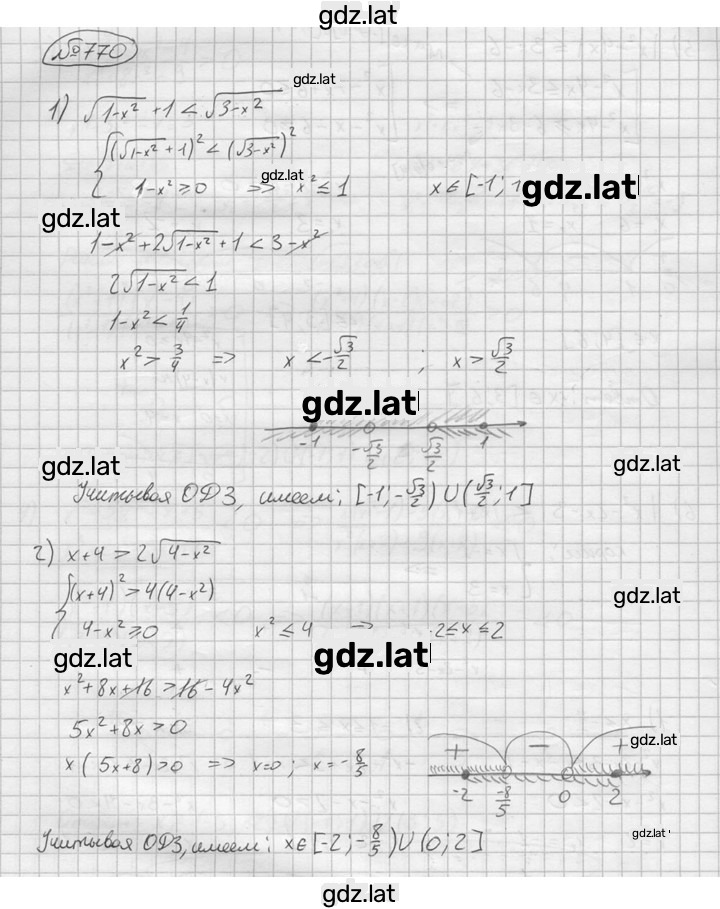 gdz.lat
№770
gdz.lat
1) √(1-x²) + 1 < √(3-x²)
{(√(1-x²) + 1)² < (√(3-x²))²
gdz.lat
1-x² ≥ 0 => x² ≤ 1 x ∈ [-1; 1 gdz.lat
gdz.lat
1-x² + 2√(1-x²) + 1 < 3-x²
2√(1-x²) < 1
1-x² < 1/4
x² > 3/4 => x < -√3/2 ; x > √3/2
gdz.lat
-1 -√3/2 √3/2 1
gdz.lat gdz.lat
Учитывая ОДЗ, имеем: [-1; -√3/2) ∪ (√3/2; 1]
2) x+4 > 2√(4-x²)
{(x+4)² > 4(4-x²)
gdz.lat
4-x² ≥ 0 x² ≤ 4 => -2 ≤ x ≤ 2
gdz.lat gdz.lat
x² + 8x + 16 > 16 - 4x²
5x² + 8x > 0
gdz.lat
x(5x+8) > 0 => x=0; x = -8/5
+ - +
-2 -8/5 0 2
gdz.lat
Учитывая ОДЗ, имеем: x ∈ [-2; -8/5) ∪ (0; 2]
gdz.lat